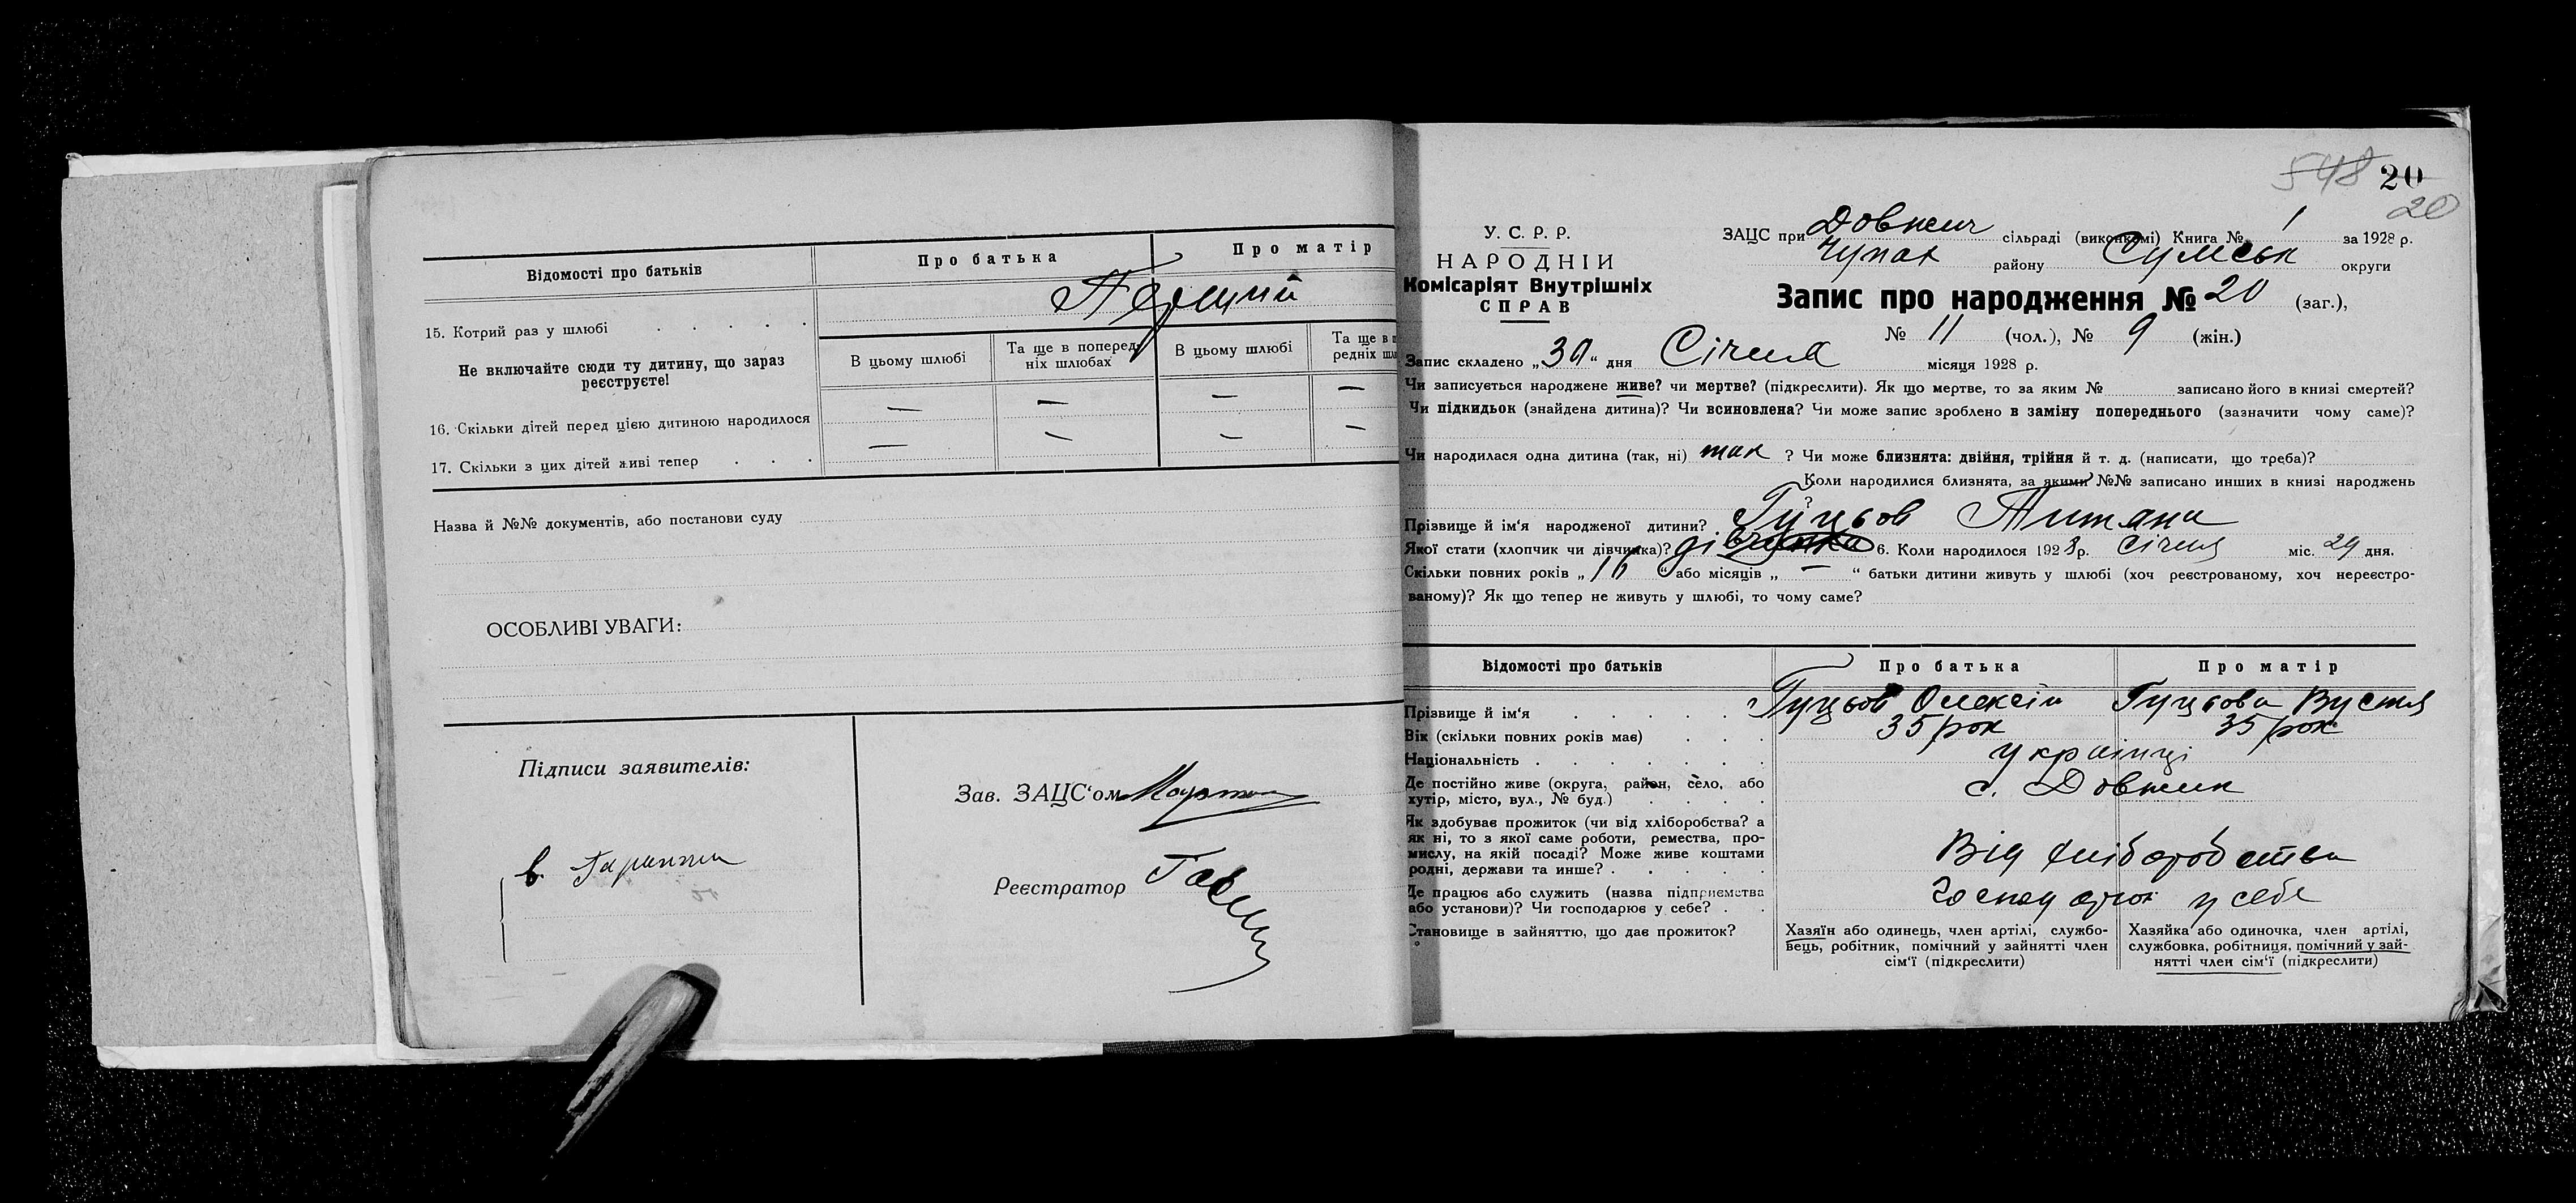 Відомості про батьків
Про батька
Про матір
15. Котрий раз у шлюбі
Перший
Не включайте сюди ту дитину, що зараз
реєструєте!
В цьому шлюбі
Та ще в поперед-
ніх шлюбах
В цьому шлюбі
Та ще в п
редніх шл
16. Скільки дітей перед цією дитиною народилося — — — —
17. Скільки з цих дітей живі тепер — — — —
Назва й №№ документів, або постанови суду
ОСОБЛИВІ УВАГИ:
Підписи заявителів:
Зав. ЗАЦС'ом
Реєстратор
548 20
20
У. С. Р. Р.
НАРОДНІЙ
Комісаріят Внутрішніх
СПРАВ
ЗАЦС при Довжич сільраді (виконкомі) Книга № 1 за 1928 р.
Чупах району Сумськ округи
Запис про народження № 20 (заг.),
№ 11 (чол.), № 9 (жін.)
Запис складено „30“ дня Січня місяця 1928 р.
Чи записується народжене живе? чи мертве? (підкреслити). Як що мертве, то за яким № записано його в книзі смертей?
Чи підкидьок (знайдена дитина)? Чи всиновлена? Чи може запис зроблено в заміну попереднього (зазначити чому саме)?
Чи народилася одна дитина (так, ні) так ? Чи може близнята: двійня, трійня й т. д. (написати, що треба)?
Коли народилися близнята, за якими №№ записано инших в книзі народжень
?
Прізвище й ім'я народженої дитини? Гуцьов Титяна
Якої стати (хлопчик чи дівчинка)? дівчинка 6. Коли народилося 1928 р. Січня міс. 29 дня.
Скільки повних років „16“ або місяців „—“ батьки дитини живуть у шлюбі (хоч реєстрованому, хоч нереєстро-
ваному)? Як що тепер не живуть у шлюбі, то чому саме?
Відомості про батьків
Про батька
Про матір
Прізвище й ім'я
Гуцьов Олексій
Гуцьова Вустя
Вік (скільки повних років має)
35 рок
35 рок
Національність
українці
Де постійно живе (округа, район, село, або
хутір, місто, вул., № буд.)
с. Довжик
Як здобуває прожиток (чи від хліборобства? а
як ні, то з якої саме роботи, ремества, про-
мислу, на якій посаді? Може живе коштами
родні, держави та инше?
Від хліборобства
Де працює або служить (назва підприємства
або установи)? Чи господарює у себе?
Господарює у себе
Становище в зайняттю, що дає прожиток?
Хазяїн або одинець, член артілі, службо-
вець, робітник, помічний у зайнятті член
сім'ї (підкреслити)
Хазяйка або одиночка, член артілі,
службовка, робітниця, помічний у зай-
нятті член сім'ї (підкреслити)